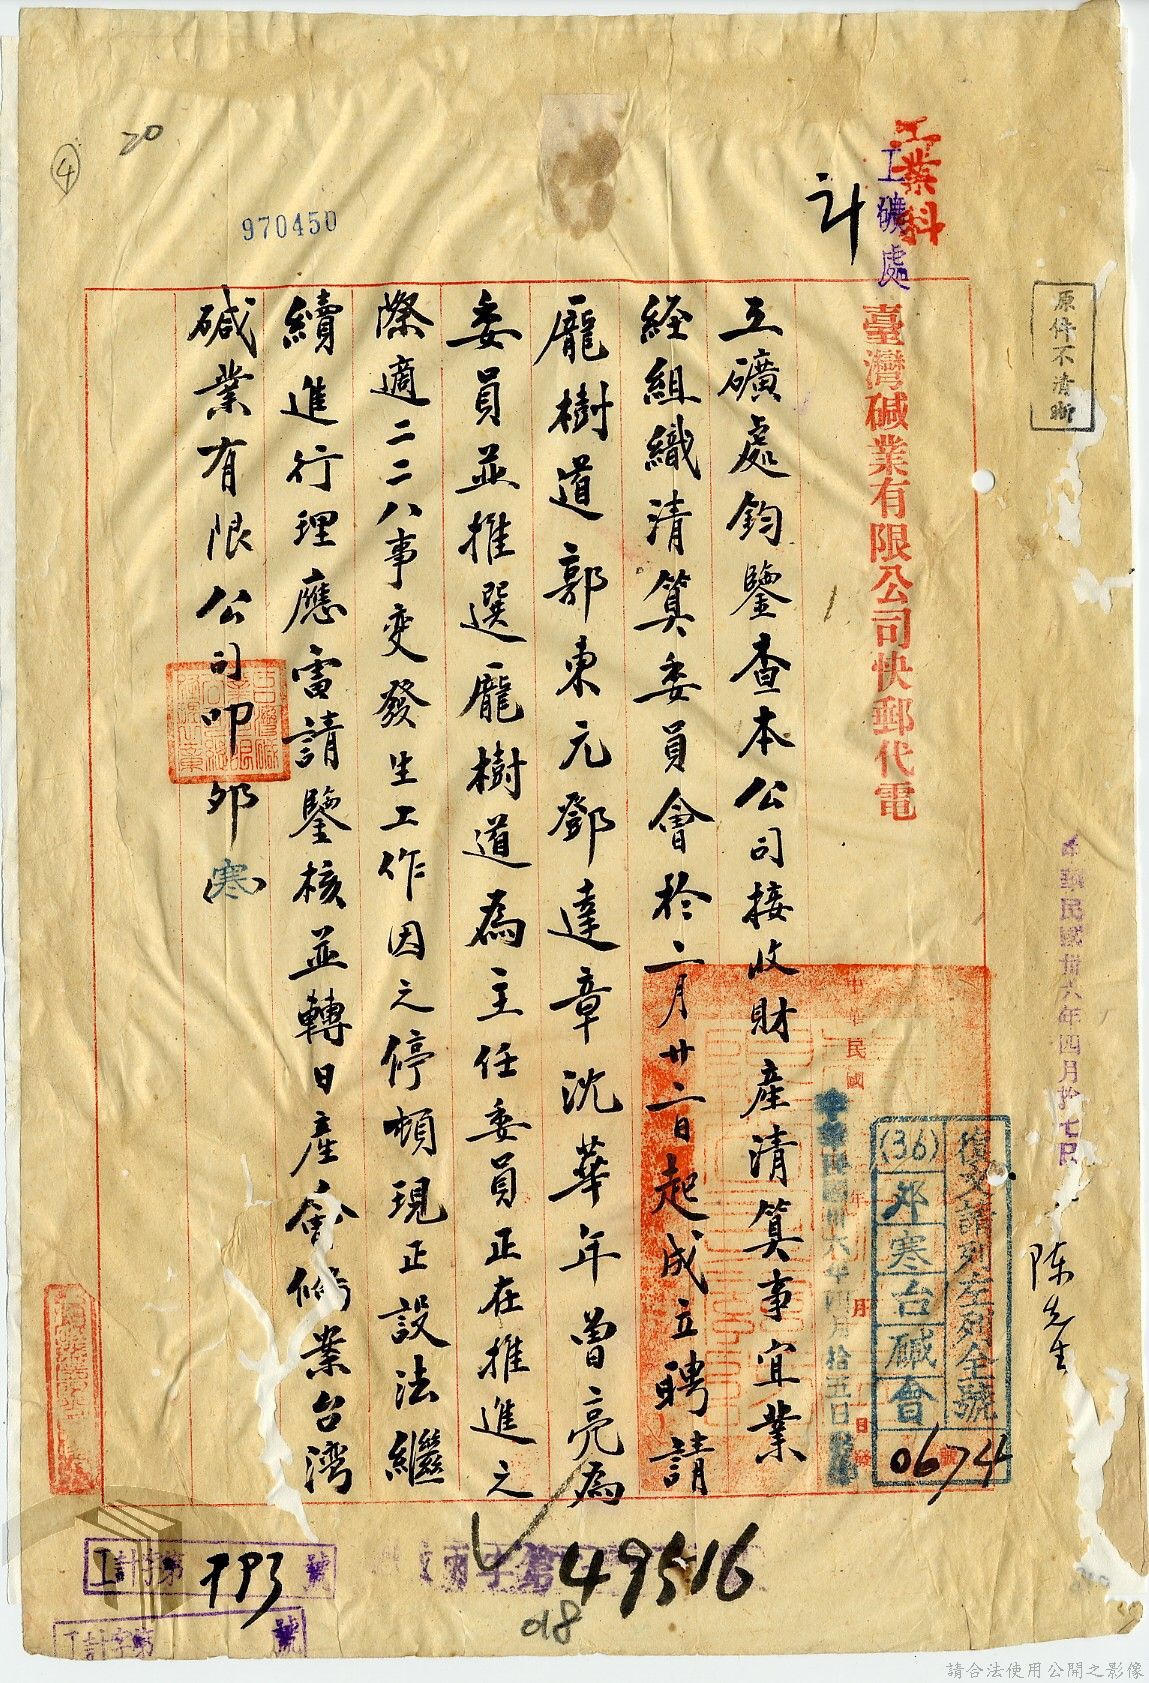 工業科
工礦處
計
20
4
970450
原件不清晰
臺灣碱業有限公司快郵代電
中華民國卅六年四月拾七日
陳先生
復文請列左列全號
(36)卯寒台碱會
0674
中華民國卅六年四月拾五日
中華民國 年 月 日
工礦處鈞鑒查本公司接收財產清算事宜業
経組織清算委員會於二月廿二日起成立聘請
龐樹道郭東元鄧達章沈華年曾亮為
委員並推選龐樹道為主任委員正在推進之
際適二二八事变發生工作因之停頓現正設法繼
續進行理應電請鑒核並轉日產會俻業台湾
碱業有限公司叩卯(寒)
工計字第793號
字第49516
工計字第 號
018
請合法使用公開之影像